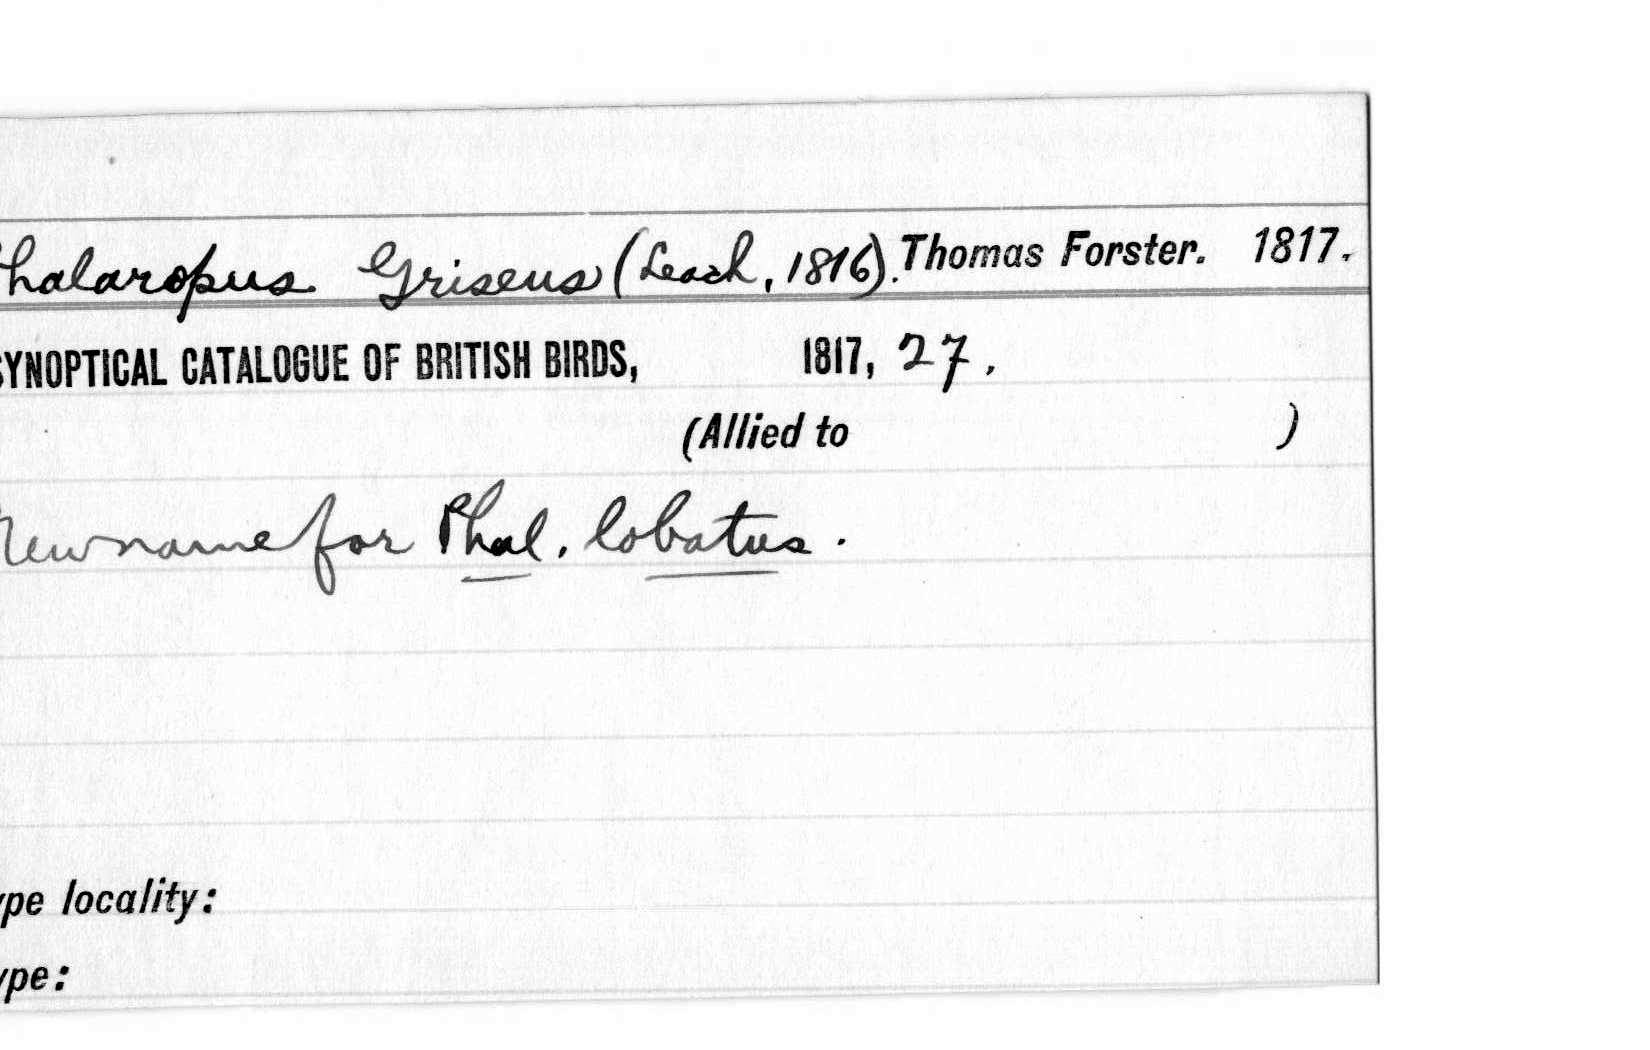 Phalaropus Griseus (Leach, 1816). Thomas Forster. 1817.
SYNOPTICAL CATALOGUE OF BRITISH BIRDS, 1817, 27.
(Allied to )
New name for Phal. lobatus.
ype locality:
ype: